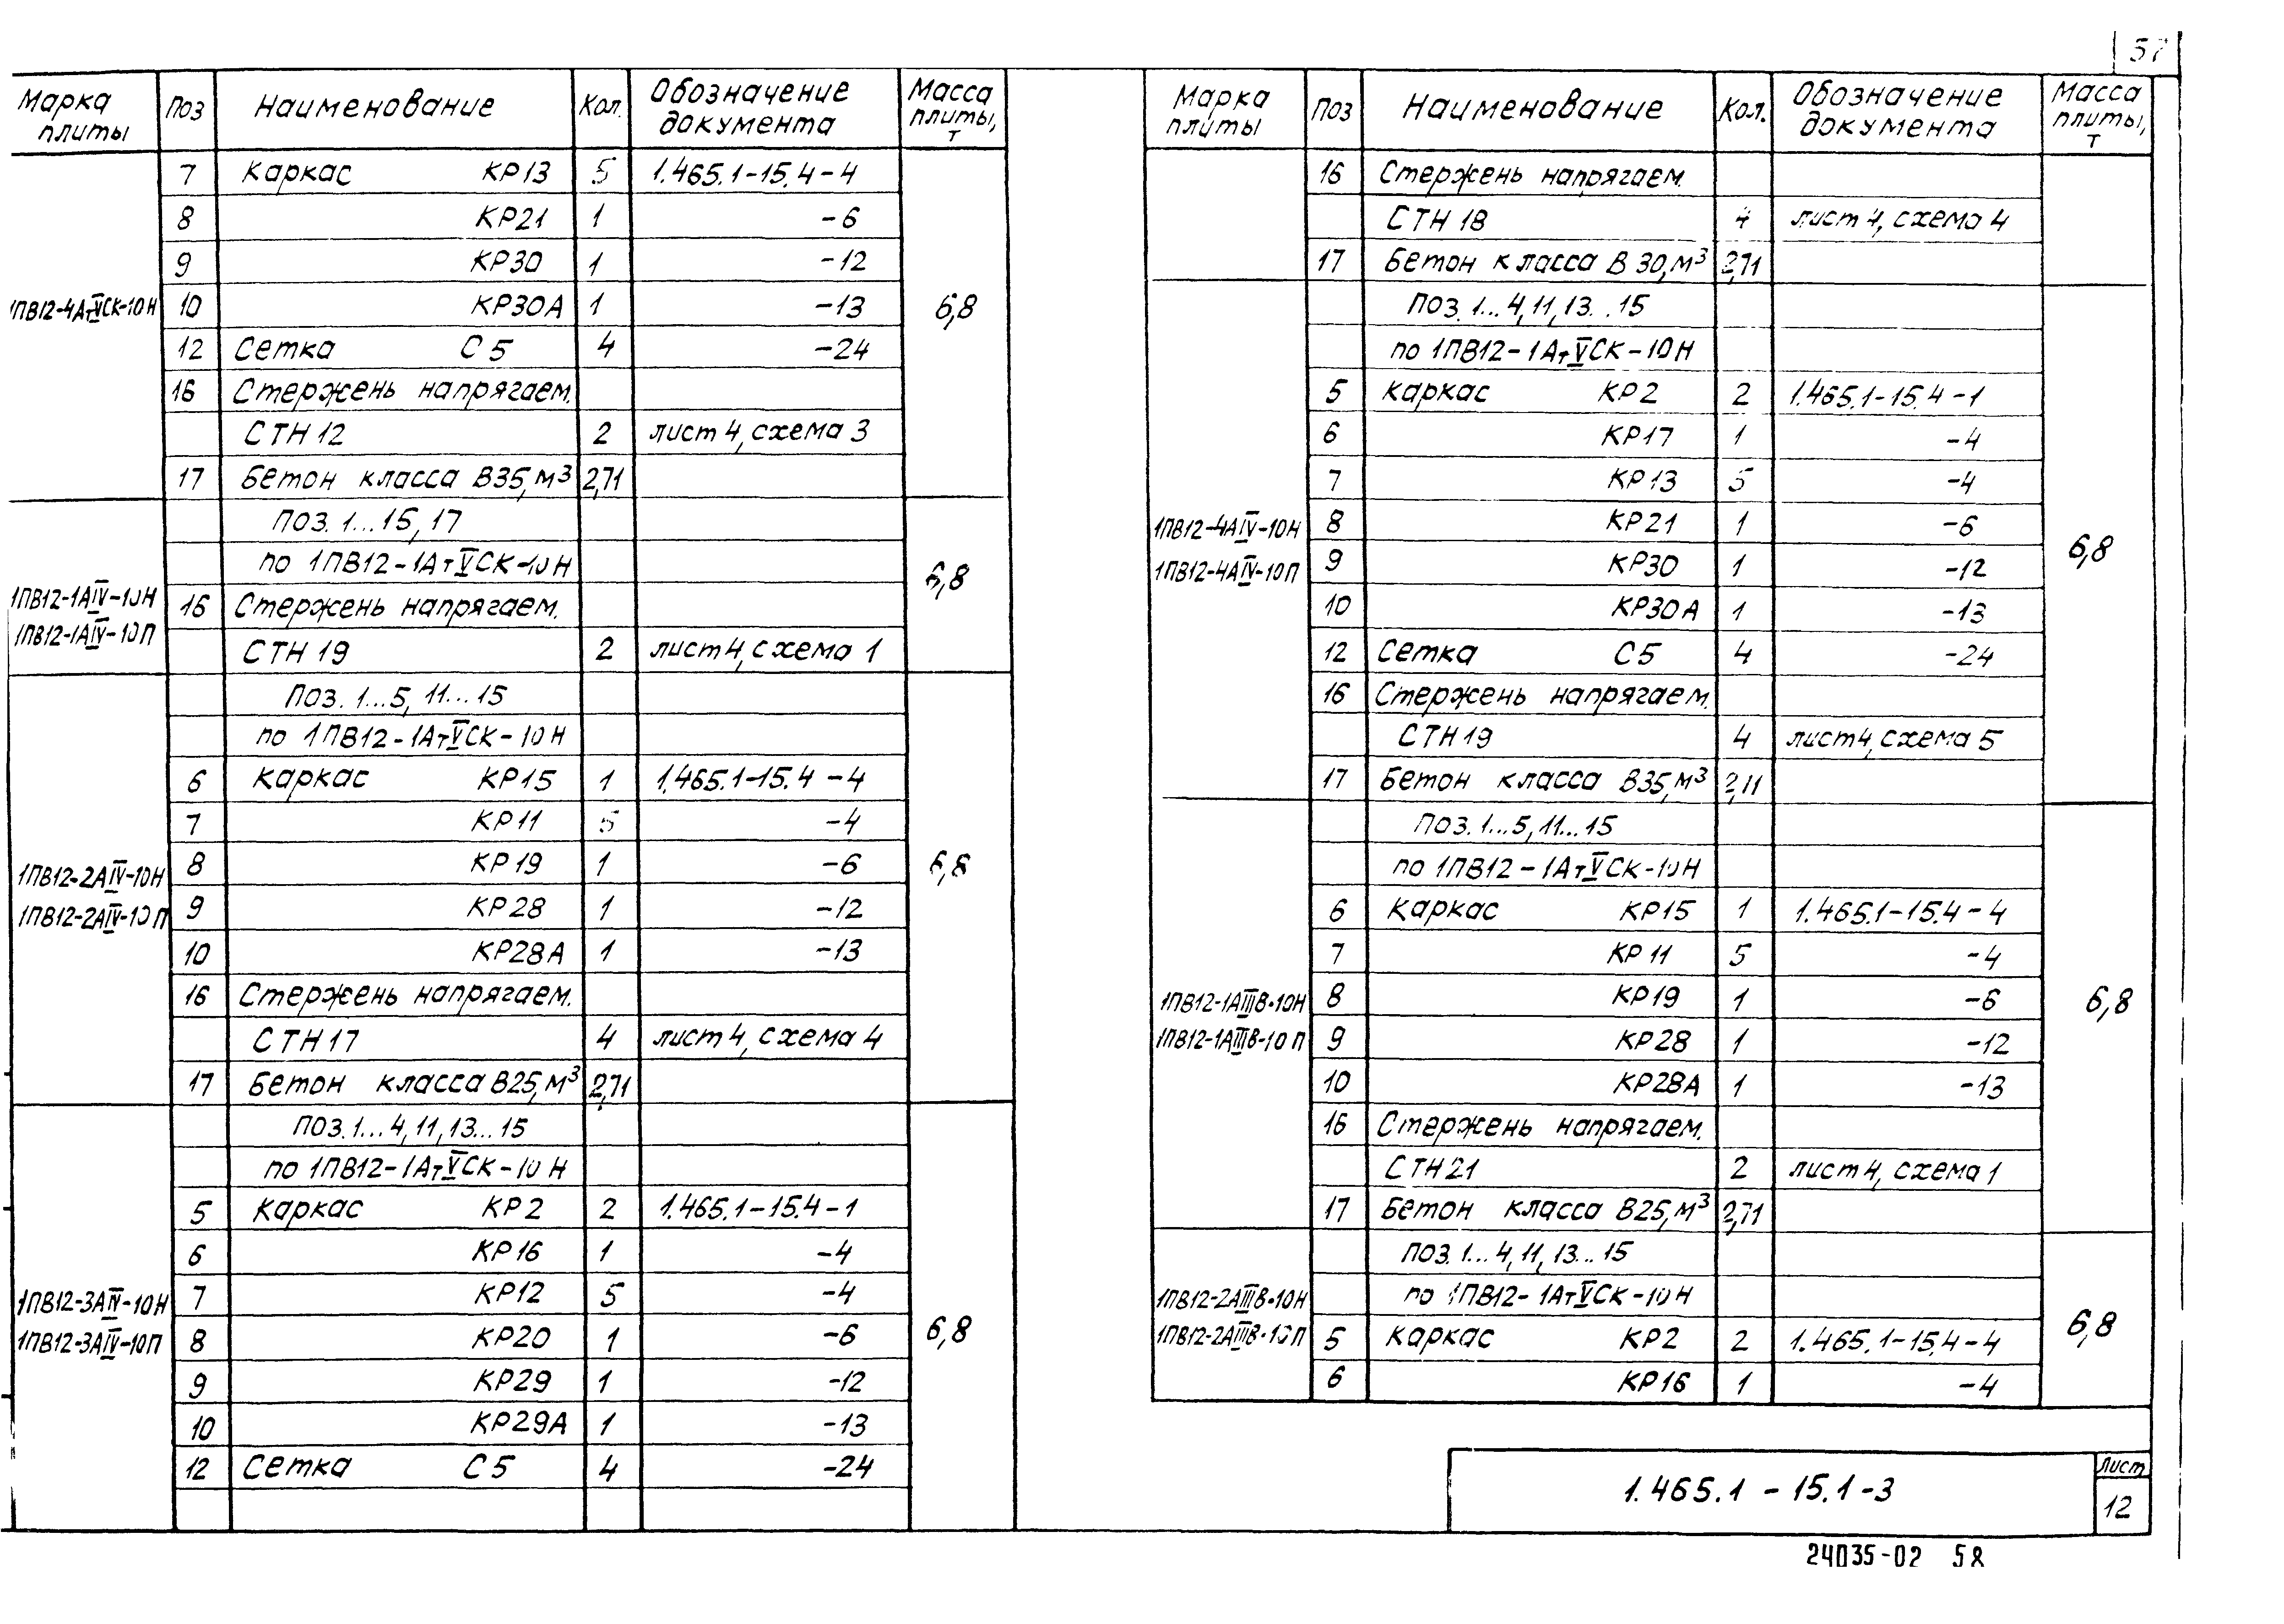 57
Марка плиты | Поз | Наименование | Кол. | Обозначение документа | Масса плиты, т
1ПВ12-4АтⅤСК-10Н | 7 | Каркас КР13 | 5 | 1.465.1-15.4-4 | 6,8
8 | КР21 | 1 | -6
9 | КР30 | 1 | -12
10 | КР30А | 1 | -13
12 | Сетка С5 | 4 | -24
16 | Стержень напрягаем.
СТН12 | 2 | лист 4, схема 3
17 | Бетон класса В35, м³ | 2,71
1ПВ12-1АⅣ-10Н
1ПВ12-1АⅣ-10П | Поз. 1...15, 17 | 6,8
по 1ПВ12-1АтⅤСК-10Н
16 | Стержень напрягаем.
СТН19 | 2 | лист 4, схема 1
1ПВ12-2АⅣ-10Н
1ПВ12-2АⅣ-10П | Поз. 1...5, 11...15 | 6,8
по 1ПВ12-1АтⅤСК-10Н
6 | Каркас КР15 | 1 | 1.465.1-15.4-4
7 | КР11 | 5 | -4
8 | КР19 | 1 | -6
9 | КР28 | 1 | -12
10 | КР28А | 1 | -13
16 | Стержень напрягаем.
СТН17 | 4 | лист 4, схема 4
17 | Бетон класса В25, м³ | 2,71
1ПВ12-3АⅣ-10Н
1ПВ12-3АⅣ-10П | Поз. 1...4, 11, 13...15 | 6,8
по 1ПВ12-1АтⅤСК-10Н
5 | Каркас КР2 | 2 | 1.465.1-15.4-1
6 | КР16 | 1 | -4
7 | КР12 | 5 | -4
8 | КР20 | 1 | -6
9 | КР29 | 1 | -12
10 | КР29А | 1 | -13
12 | Сетка С5 | 4 | -24
Марка плиты | Поз | Наименование | Кол. | Обозначение документа | Масса плиты, т
16 | Стержень напрягаем.
СТН18 | 4 | лист 4, схема 4
17 | Бетон класса В30, м³ | 2,71
1ПВ12-4АⅣ-10Н
1ПВ12-4АⅣ-10П | Поз. 1...4, 11, 13...15 | 6,8
по 1ПВ12-1АтⅤСК-10Н
5 | Каркас КР2 | 2 | 1.465.1-15.4-1
6 | КР17 | 1 | -4
7 | КР13 | 5 | -4
8 | КР21 | 1 | -6
9 | КР30 | 1 | -12
10 | КР30А | 1 | -13
12 | Сетка С5 | 4 | -24
16 | Стержень напрягаем.
СТН19 | 4 | лист 4, схема 5
17 | Бетон класса В35, м³ | 2,71
1ПВ12-1АⅢВ-10Н
1ПВ12-1АⅢВ-10П | Поз. 1...5, 11...15 | 6,8
по 1ПВ12-1АтⅤСК-10Н
6 | Каркас КР15 | 1 | 1.465.1-15.4-4
7 | КР11 | 5 | -4
8 | КР19 | 1 | -6
9 | КР28 | 1 | -12
10 | КР28А | 1 | -13
16 | Стержень напрягаем.
СТН21 | 2 | лист 4, схема 1
17 | Бетон класса В25, м³ | 2,71
1ПВ12-2АⅢВ-10Н
1ПВ12-2АⅢВ-10П | Поз. 1...4, 11, 13...15 | 6,8
по 1ПВ12-1АтⅤСК-10Н
5 | Каркас КР2 | 2 | 1.465.1-15.4-4
6 | КР16 | 1 | -4
1.465.1-15.1-3
Лист
12
24035-02 58